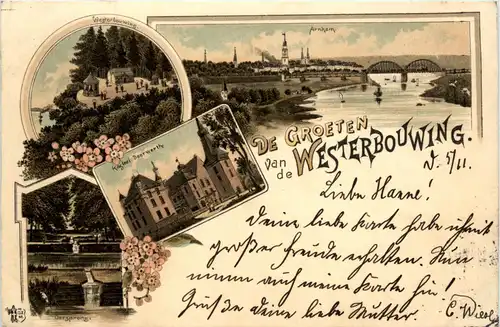 Westerbouwing
Arnhem
Kasteel Doorwerth
DE GROETEN
van de WESTERBOUWING.
d. 5/11.
Liebe Hanne!
Deine liebe Karte habe ich mit
großer Freude erhalten. Nun
nimm auch meine Karte hin!
Grüße deine liebe Mutter.